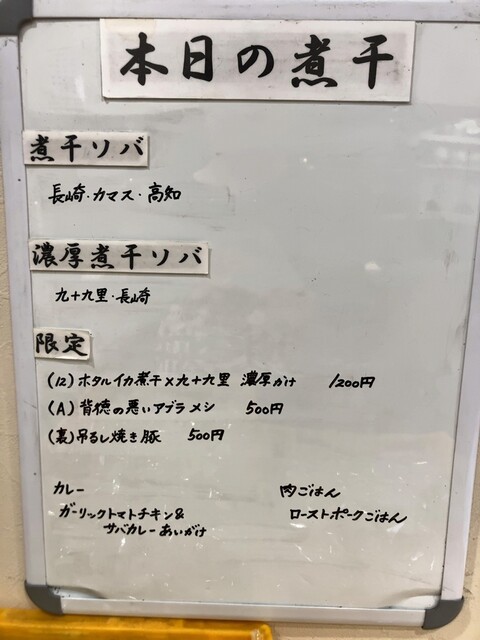 本日の煮干
煮干ソバ
長崎・カマス・高知
濃厚煮干ソバ
九十九里・長崎
限定
(12) ホタルイカ煮干×九十九里 濃厚がけ 1200円
(A) 背徳の悪いアブラメシ 500円
(裏) 吊るし焼き豚 500円
カレー
ガーリックトマトチキン&
サバカレーあいがけ
肉ごはん
ローストポークごはん